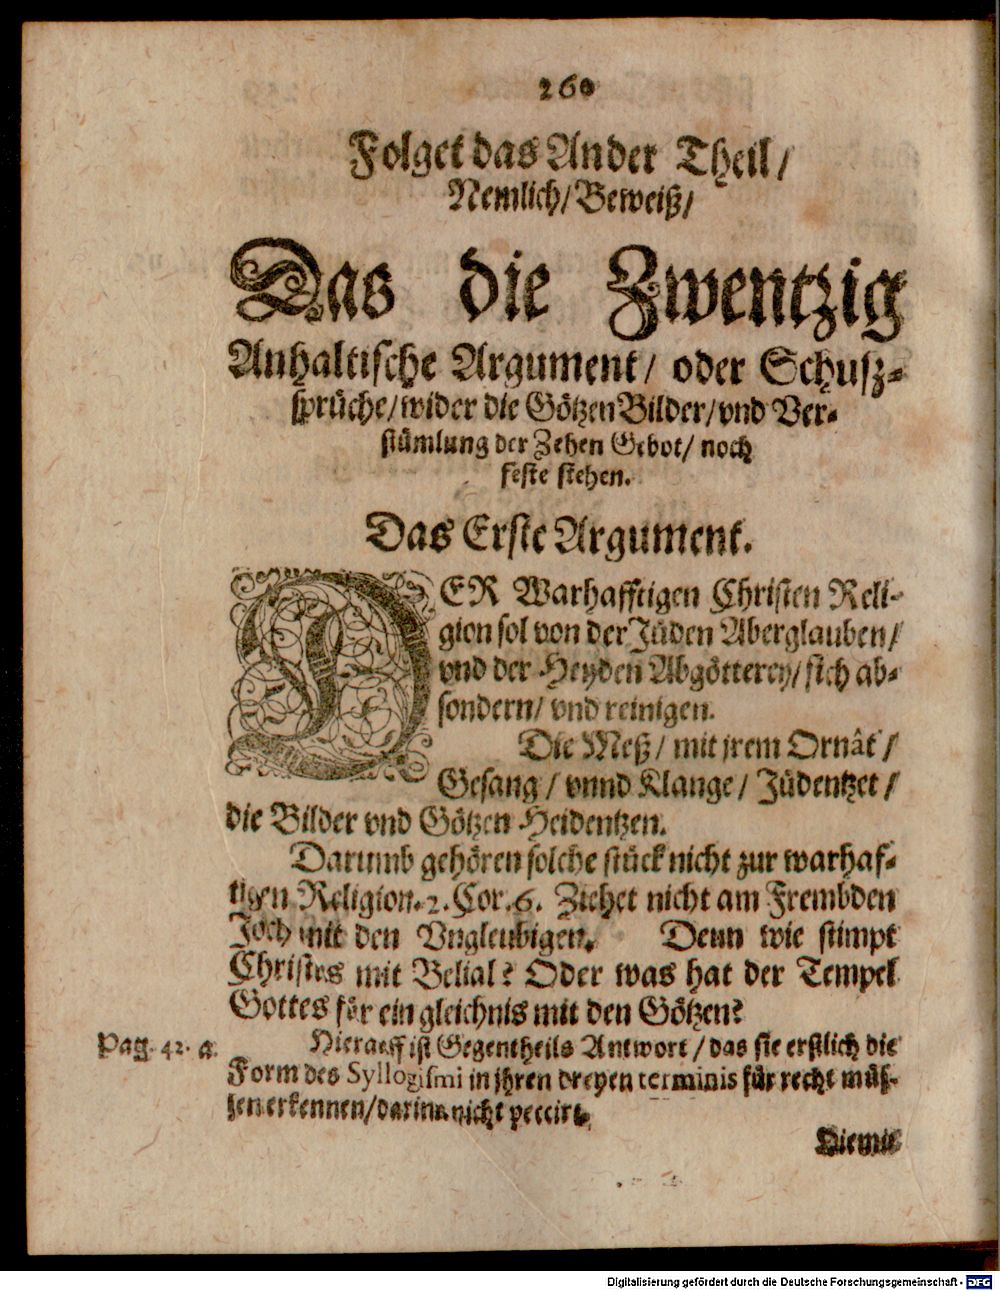 260
Folget das Ander Theil/
Nemlich/Beweiß/
Das die Zwentzig
Anhaltische Argument/ oder Schusz-
sprüche/wider die GötzenBilder/vnd Ver-
stümlung der Zehen Gebot/ noch
feste stehen.
Das Erste Argument.
DER Warhafftigen Christen Reli-
gion sol von der Jüden Aberglauben/
vnd der Heyden Abgötterey/sich ab-
sondern/ vnd reinigen.
Die Meß/ mit jrem Ornât/
Gesang/ vnnd Klange/ Jüdentzet/
die Bilder vnd Götzen Heidentzen.
Darumb gehören solche stück nicht zur warhaf-
tigen Religion. 2. Cor. 6. Ziehet nicht am Frembden
Joch mit den Vngleubigen. Denn wie stimpt
Christus mit Belial? Oder was hat der Tempel
Gottes für ein gleichnis mit den Götzen?
Pag. 42. a.
Hierauff ist Gegentheils Antwort/das sie erstlich die
Form des Syllogismi in jhren dreyen terminis für recht müs-
sen erkennen/darinn nicht peccirt.
Hiemit
Digitalisierung gefördert durch die Deutsche Forschungsgemeinschaft - DFG